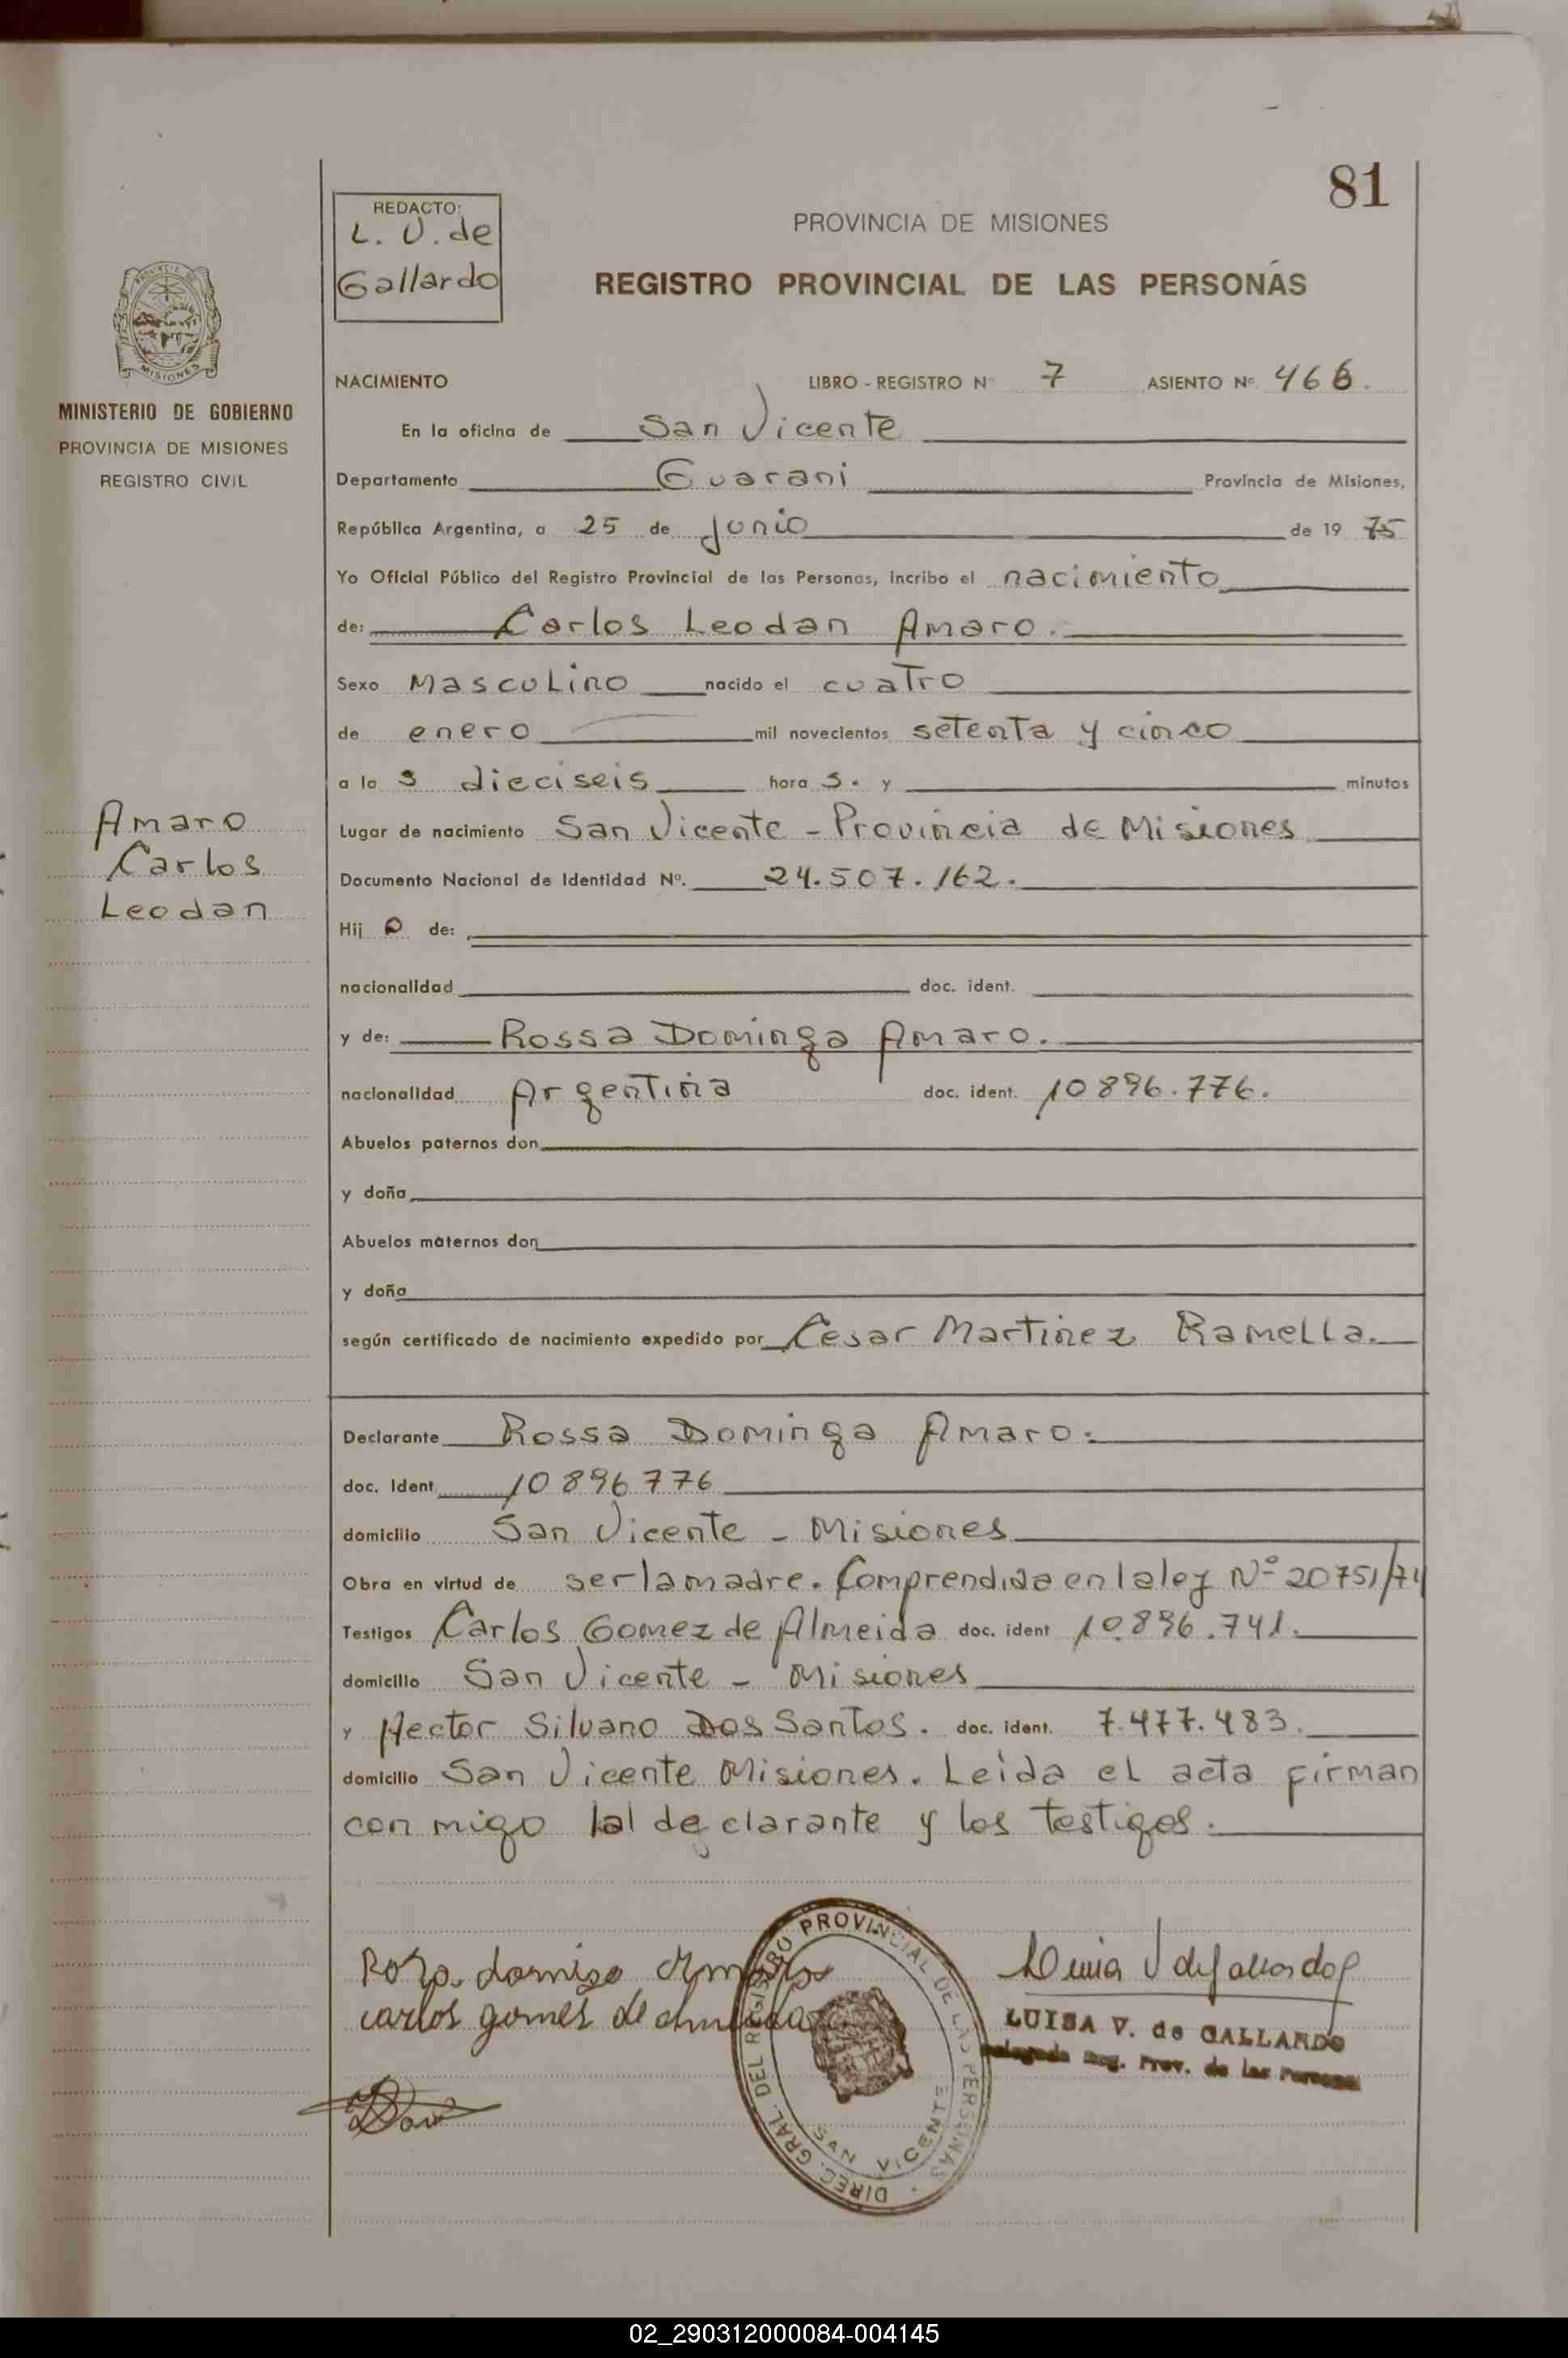 81
REDACTO:
L. V. de
Gallardo
PROVINCIA DE MISIONES
REGISTRO PROVINCIAL DE LAS PERSONAS
MISIONES
MINISTERIO DE GOBIERNO
PROVINCIA DE MISIONES
REGISTRO CIVIL
NACIMIENTO LIBRO - REGISTRO N° 7 ASIENTO Nº 466.
En la oficina de San Vicente
Departamento Guarani Provincia de Misiones,
República Argentina, a 25 de junio de 19 75
Yo Oficial Público del Registro Provincial de las Personas, incribo el nacimiento
de: Carlos Leodan Amaro.
Sexo Masculino nacido el cuatro
de enero mil novecientos setenta y cinco
a la s dieciseis hora s. y minutos
Amaro
Carlos
Leodan
Lugar de nacimiento San Vicente - Provincia de Misiones
Documento Nacional de Identidad Nº. 24.507.162.
Hij o de:
nacionalidad doc. ident.
y de: Rossa Dominga Amaro.
nacionalidad Argentina doc. ident. 10896.776.
Abuelos paternos don
y doña
Abuelos maternos don
y doña
según certificado de nacimiento expedido por Cesar Martinez Ramella.
Declarante Rossa Dominga Amaro.
doc. Ident 10896776
domicilio San Vicente - Misiones
Obra en virtud de ser la madre. Comprendida en la ley Nº 20751/74
Testigos Carlos Gomez de Almeida doc. ident 10.896.741.
domicilio San Vicente - Misiones
y Hector Silvano Dos Santos. doc. ident. 7.477.483.
domicilio San Vicente Misiones. Leida el acta firman
con migo la declarante y los testigos.
Rosa dominga Amaro
carlos gomes de almeida
DIREC. GRAL. DEL REGISTRO PROVINCIAL DE LAS PERSONAS
SAN VICENTE
LUISA V. de GALLARDO
Delegada Reg. Prov. de las Personas
02_290312000084-004145